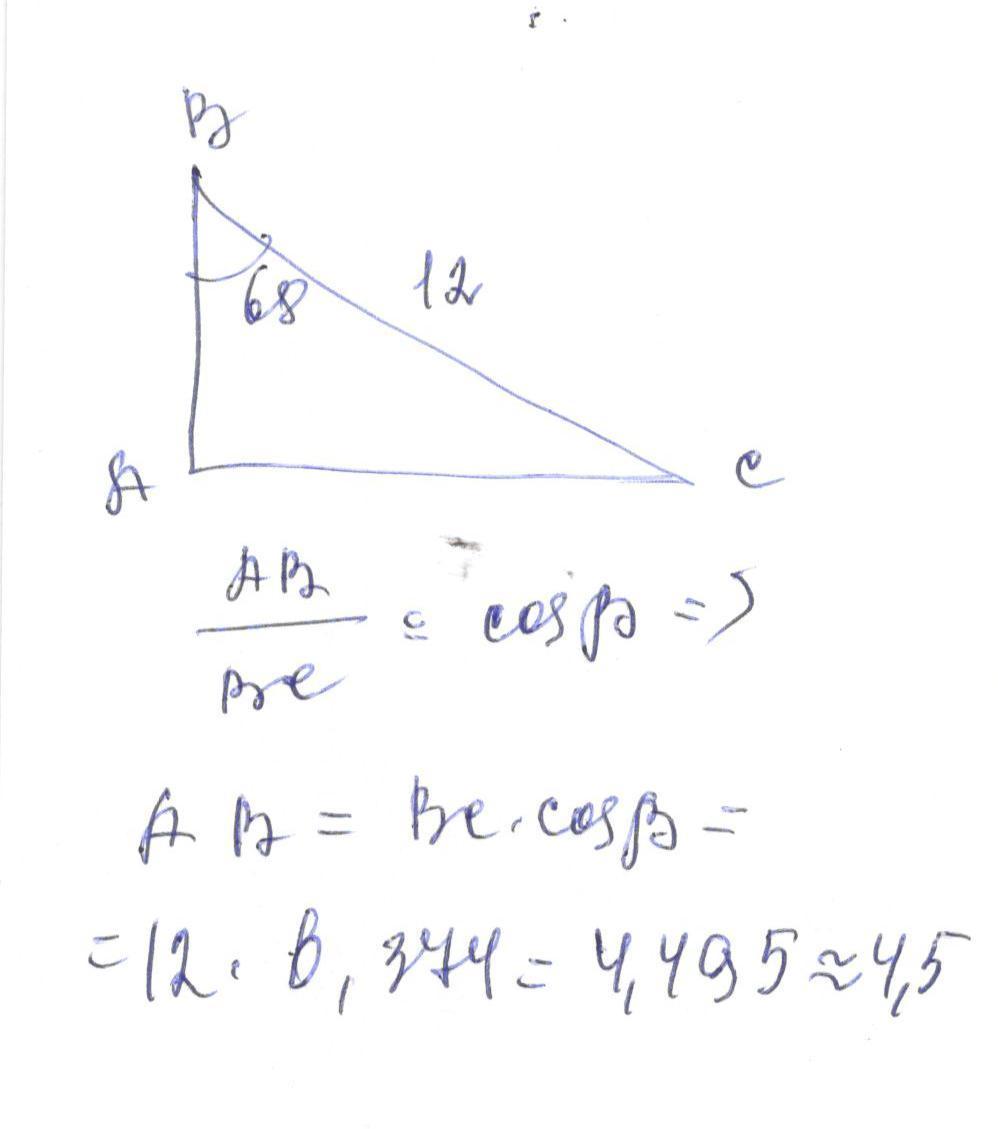 B
68
12
A
C
AB
BC
= cos β =>
AB = BC · cos β =
= 12 · 0,374 = 4,495 ≈ 4,5